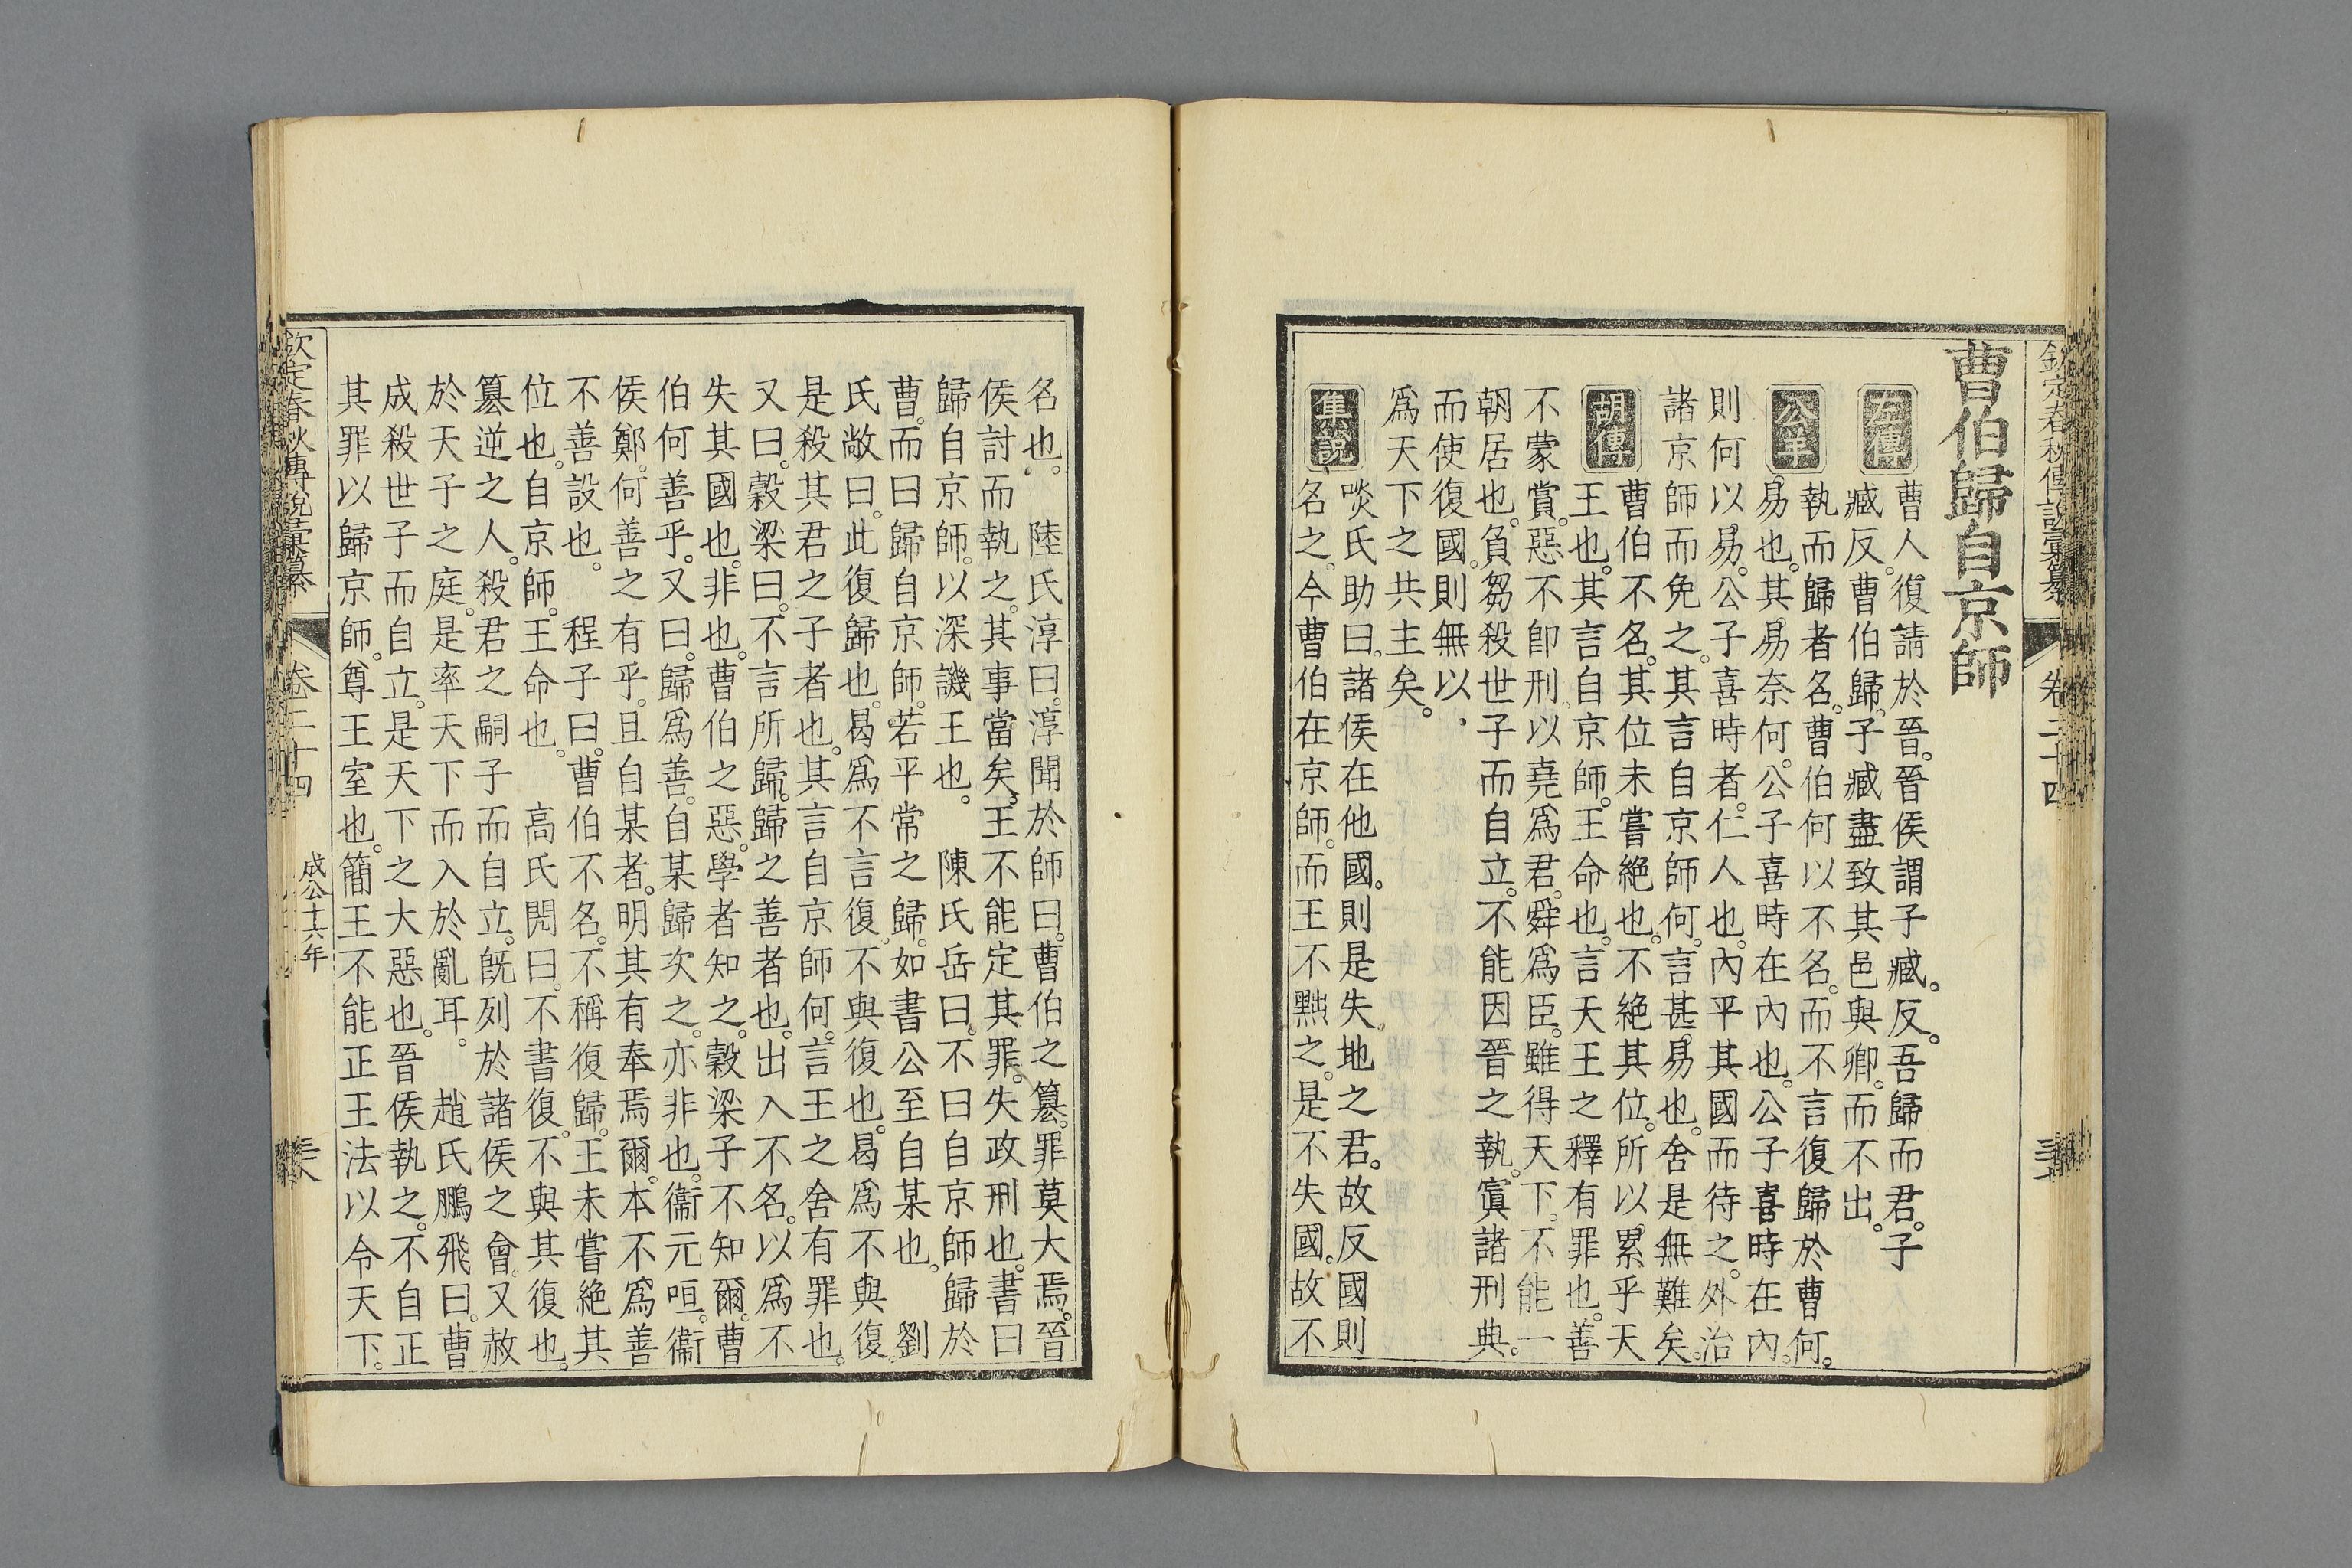 欽定春秋傳說彙纂 卷二十四
曹伯歸自京師
左傳 曹人復請於晉。晉侯謂子臧。反。吾歸而君。子
臧反。曹伯歸。子臧盡致其邑與卿。而不出。
公羊 執而歸者名。曹伯何以不名。而不言復歸於曹何。
易也。其易奈何。公子喜時在內也。公子喜時在內。
則何以易。公子喜時者。仁人也。內平其國而待之。外治
諸京師而免之。其言自京師何。言甚易也。舍是無難矣。
胡傳 曹伯不名。其位未嘗絕也。不絕其位。所以累乎天
王也。其言自京師。王命也。言天王之釋有罪也。善
不蒙賞。惡不卽刑。以堯爲君。舜爲臣。雖得天下。不能一
朝居也。負芻殺世子而自立。不能因晉之執。寘諸刑典。
而使復國。則無以
爲天下之共主矣。
集說 啖氏助曰。諸侯在他國。則是失地之君。故反國則
名之。今曹伯在京師。而王不黜之。是不失國。故不
名也。 陸氏淳曰。淳聞於師曰。曹伯之篡。罪莫大焉。晉
侯討而執之。其事當矣。王不能定其罪。失政刑也。書曰
歸自京師。以深譏王也。 陳氏岳曰。不曰自京師歸於
曹。而曰歸自京師。若平常之歸。如書公至自某也。 劉
氏敞曰。此復歸也。曷爲不言復。不與復也。曷爲不與復。
是殺其君之子者也。其言自京師何。言王之舍有罪也。
又曰。穀梁曰。不言所歸。歸之善者也。出入不名。以爲不
失其國也。非也。曹伯之惡。學者知之。穀梁子不知爾。曹
伯何善乎。又曰。歸爲善。自某歸次之。亦非也。衞元咺。衞
侯鄭。何善之有乎。且自某者。明其有奉焉爾。本不爲善
不善設也。 程子曰。曹伯不名。不稱復歸。王未嘗絕其
位也。自京師。王命也。 高氏閌曰。不書復。不與其復也。
篡逆之人。殺君之嗣子而自立。旣列於諸侯之會。又赦
於天子之庭。是率天下而入於亂耳。 趙氏鵬飛曰。曹
成殺世子而自立。是天下之大惡也。晉侯執之。不自正
其罪以歸京師。尊王室也。簡王不能正王法以令天下。
欽定春秋傳說彙纂 卷二十四 成公十六年